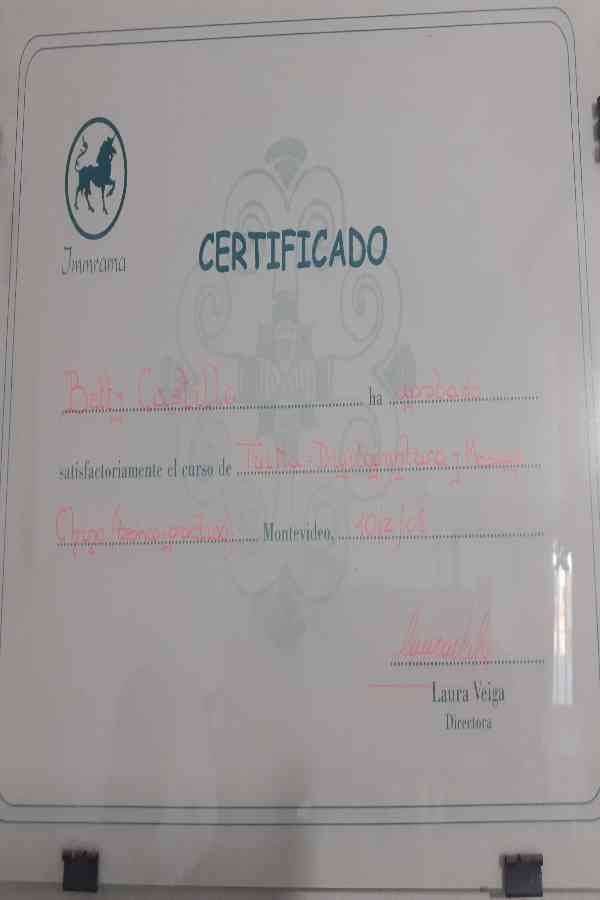 Immrama
CERTIFICADO
Betty Castillo ha aprobado
satisfactoriamente el curso de TuiNa - Digitopuntura y Masaje
Chino (teorico-practico) Montevideo, 10/2/08
Laura Veiga
Directora